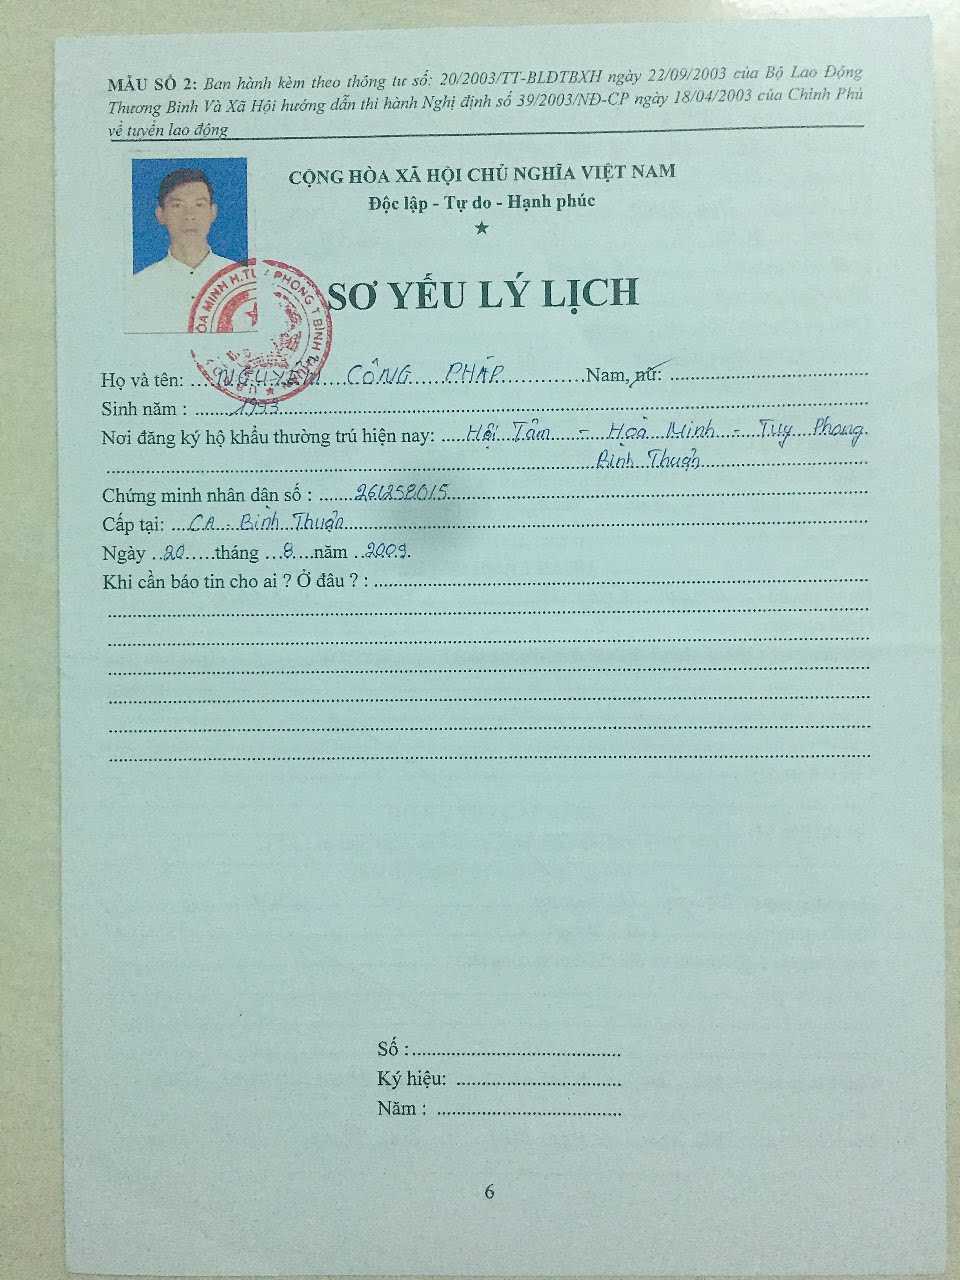 MẪU SỐ 2: Ban hành kèm theo thông tư số: 20/2003/TT-BLĐTBXH ngày 22/09/2003 của Bộ Lao Động
Thương Binh Và Xã Hội hướng dẫn thi hành Nghị định số 39/2003/NĐ-CP ngày 18/04/2003 của Chính Phủ
về tuyển lao động
CỘNG HÒA XÃ HỘI CHỦ NGHĨA VIỆT NAM
Độc lập - Tự do - Hạnh phúc
SƠ YẾU LÝ LỊCH
HÒA MINH H.TUY PHONG T BÌNH THUẬN
Họ và tên: NGUYỄN CÔNG PHÁP Nam, nữ:
Sinh năm : 1993
Nơi đăng ký hộ khẩu thường trú hiện nay: Hội Tâm - Hoà Minh - Tuy Phong
Bình Thuận
Chứng minh nhân dân số : 261258015
Cấp tại: CA - Bình Thuận
Ngày 20 tháng 8 năm 2009.
Khi cần báo tin cho ai ? Ở đâu ? :
Số :
Ký hiệu:
Năm :
6